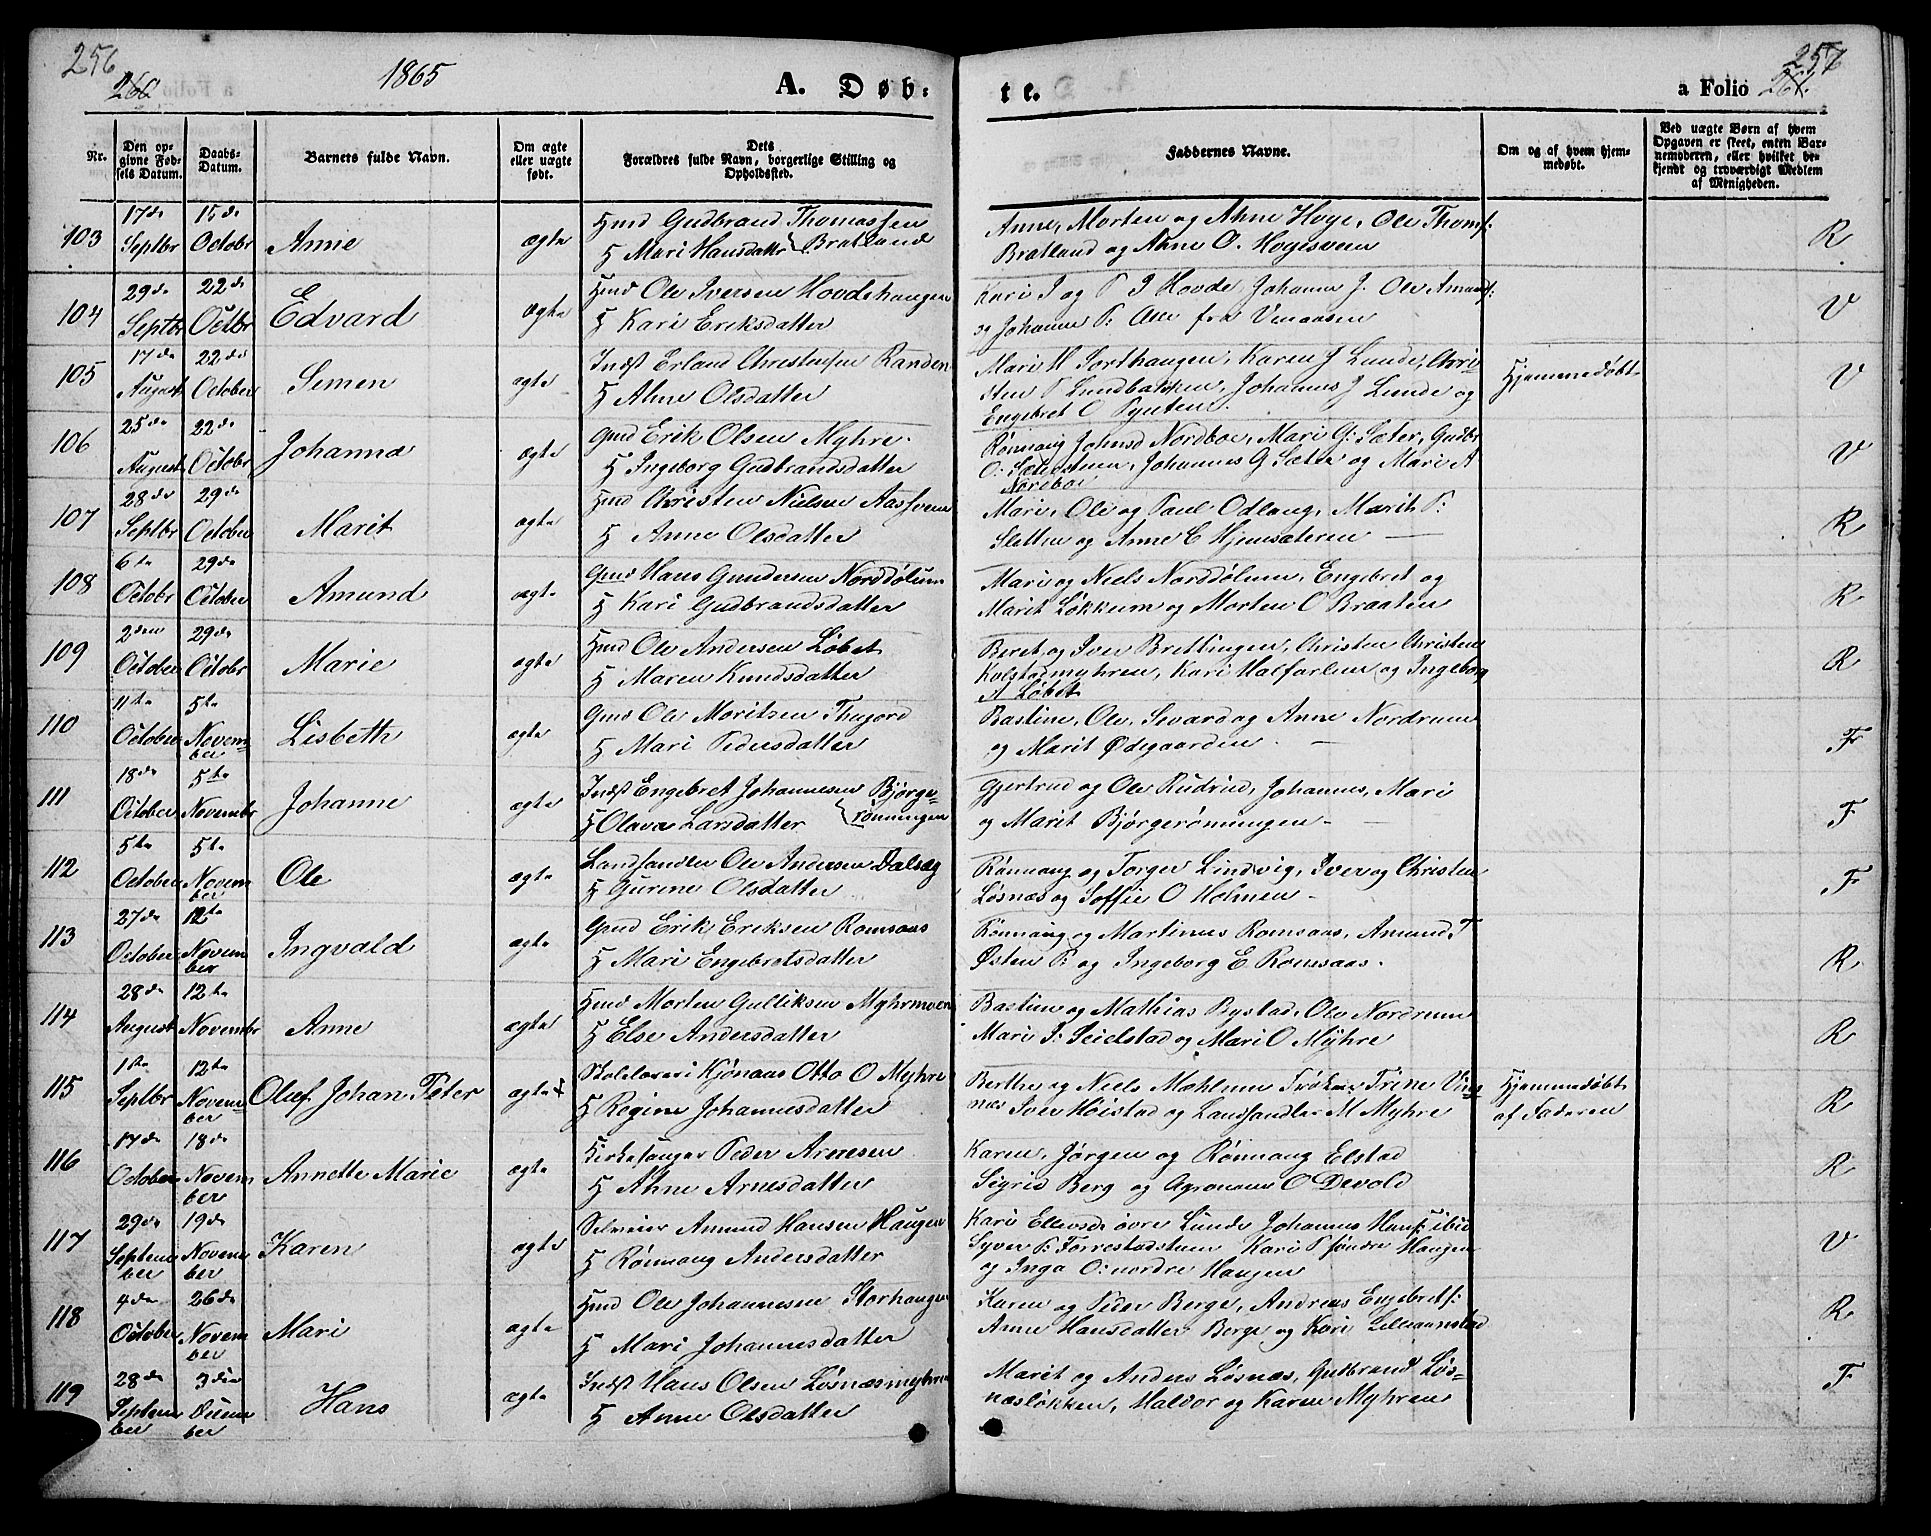 256
260
1865
A. Døb-
te.
a Folio 261.
257
Nr.
Den op-
givne Fød-
sels Datum.
Daabs-
Datum.
Barnets fulde Navn.
Om ægte
eller uægte
født.
Dets
Forældres fulde Navn, borgerlige Stilling og
Opholdssted.
Faddernes Navne.
Om og af hvem hjem-
medøbt.
Ved uægte Børn af hvem
Opgaven er skeet, enten Bar-
nemoderen, eller hvilket be-
kjendt og troværdigt Medlem
af Menigheden.
103
17de
Septbr
15de
Octobr
Anne
ægte
Hmd Gudbrand Thomassen
H Mari Hansdatter Bratland
Anne, Morten og Ahne Hoge, Ole Thoms:
Bratland og Ahne O. Hogesveen
R
104
29de
Septbr
22de
Octbr
Edvard
ægte
Hmd Ole Iversen Hovdehaugen
H Kari Eriksdatter
Kari I og P I Hovde Johanne J. Ole Amunds:
og Johanne P: Alle fra
V
105
17de
August
22de
October
Semen
ægte
Indst Erland Christensen Randen
H Ahne Olsdatter
Mari M Sorthaugen, Karen J Lunde, Chri-
sten P Lundbakken, Johannes J Lunde og
Engebret O Pynten.
Hjemmedøbt
V
106
25de
August
22de
October
Johanna
ægte
Gmd Erik Olsen Myhre.
H Ingeborg Gudbrandsdatter
Rønnaug Johnsd Nordboe, Mari G: Sæter, Gudbr
O: Johannes G Sæter og Mari A
Nordboe
V
107
28de
Septbr
29de
October
Marit
ægte
Hmd Christen Nielsen Aassveen
H Anne Olsdatter
Mari, Ole og Paul Odlaug, Marit P:
Sletten og Anne E Hjemsæteren —
R
108
6te
Octobr
29de
October
Amund
ægte
Gmd Hans Gundersen Norddølum
H Kari Gudbrandsdatter
Mari og Niels Norddølum, Engebret og
Marit Løkkum og Morten O Braaten
R
109
2den
October
29de
Octobr
Marie
ægte
Hmd Ole Andersen Løbet
H Maren Knudsdatter
Beret og Iver Brettingen, Christen Christens
Kolstadmyhren, Kari Halfarlien og Ingeborg
A Løbet
R
110
11te
October
5te
Novem-
ber
Lisbeth
ægte
Gmd Ole Moritsen Thujord
H Mari Pedersdatter
Bastine, Ole, Sevard og Anne Nordrum
og Marit Ødegaarden. —
F
111
18de
October
5te
Novembr
Johanne
ægte
Indst Engebret Johannesen Bjørge-
H Olava Larsdatter rønningen
Gjertrud og Ole Rudrud, Johannes, Mari
og Marit Bjørgerønningen —
F
112
5te
October
5te
Novem
ber
Ole
ægte
Landhandler Ole Andersen Dalseg
H Gurine Olsdatter
Rønnaug og Torger Lindvig, Iver og Christen
Løsnæs og Soffie O Holmen —
F
113
27de
October
12te
Novem
ber
Ingvald
ægte
Gmd Erik Eriksen Romsaas
H Mari Engebretsdatter
Rønnaug og Martinus Romsaas, Amund T
Østen P: og Ingeborg E Romsaas.
R
114
28de
August
12te
Novembr
Anne
ægte
Hmd Morten Gulliksen Myhrmoen
H Else Andersdatter
Bastine og Mathias Bystad, Ole Nordrum
Mari J: Seielstad og Mari O Myhre
R
115
1ste
Septbr
12te
Novem-
ber
Oluf Johan Peter
ægte
Skolelærer i Kjønaas Otto O Myhre
H Regine Johannesdatter
Berthe og Niels Mæhlum Frøken Trine Vig-
næs Iver Høistad og Landhandler M Myhre
Hjemmedøbt
af Faderen
R
116
17de
October
18de
Novem
ber
Annette Marie
ægte
Kirkesanger Peder Arnesen
H Ahne Arnesdatter
Karen, Jørgen og Rønnaug Elstad
Sigrid Berg og Agronom O Devold
R
117
29de
Septem
ber
19de
Novem
ber
Karen
ægte
Selveier Amund Hansen Haugen
H Rønnaug Andersdatter
Kari Ellevsd: øvre Lunde Johannes Hans: ibid
Syver P: Forrestadstuen Kari P søndre Haugen
og Inga O: nordre Haugen
V
118
4de
October
26de
Novem
ber
Mari
ægte
Hmd Ole Johannesen Storhaugen
H Mari Johannesdatter
Karen og Peder Berge, Andreas Engebrets:
Anne Hansdatter Berge og Kari Lilleaanstad
R
119
28de
Septem
ber
3die
Decem
ber
Hans
ægte
Indst Hans Olsen Løsnæsmyhren
H Anne Olsdatter
Marit og Anders Løsnæs, Gudbrand Løs-
næsløkken, Haldor og Karen Myhren
F